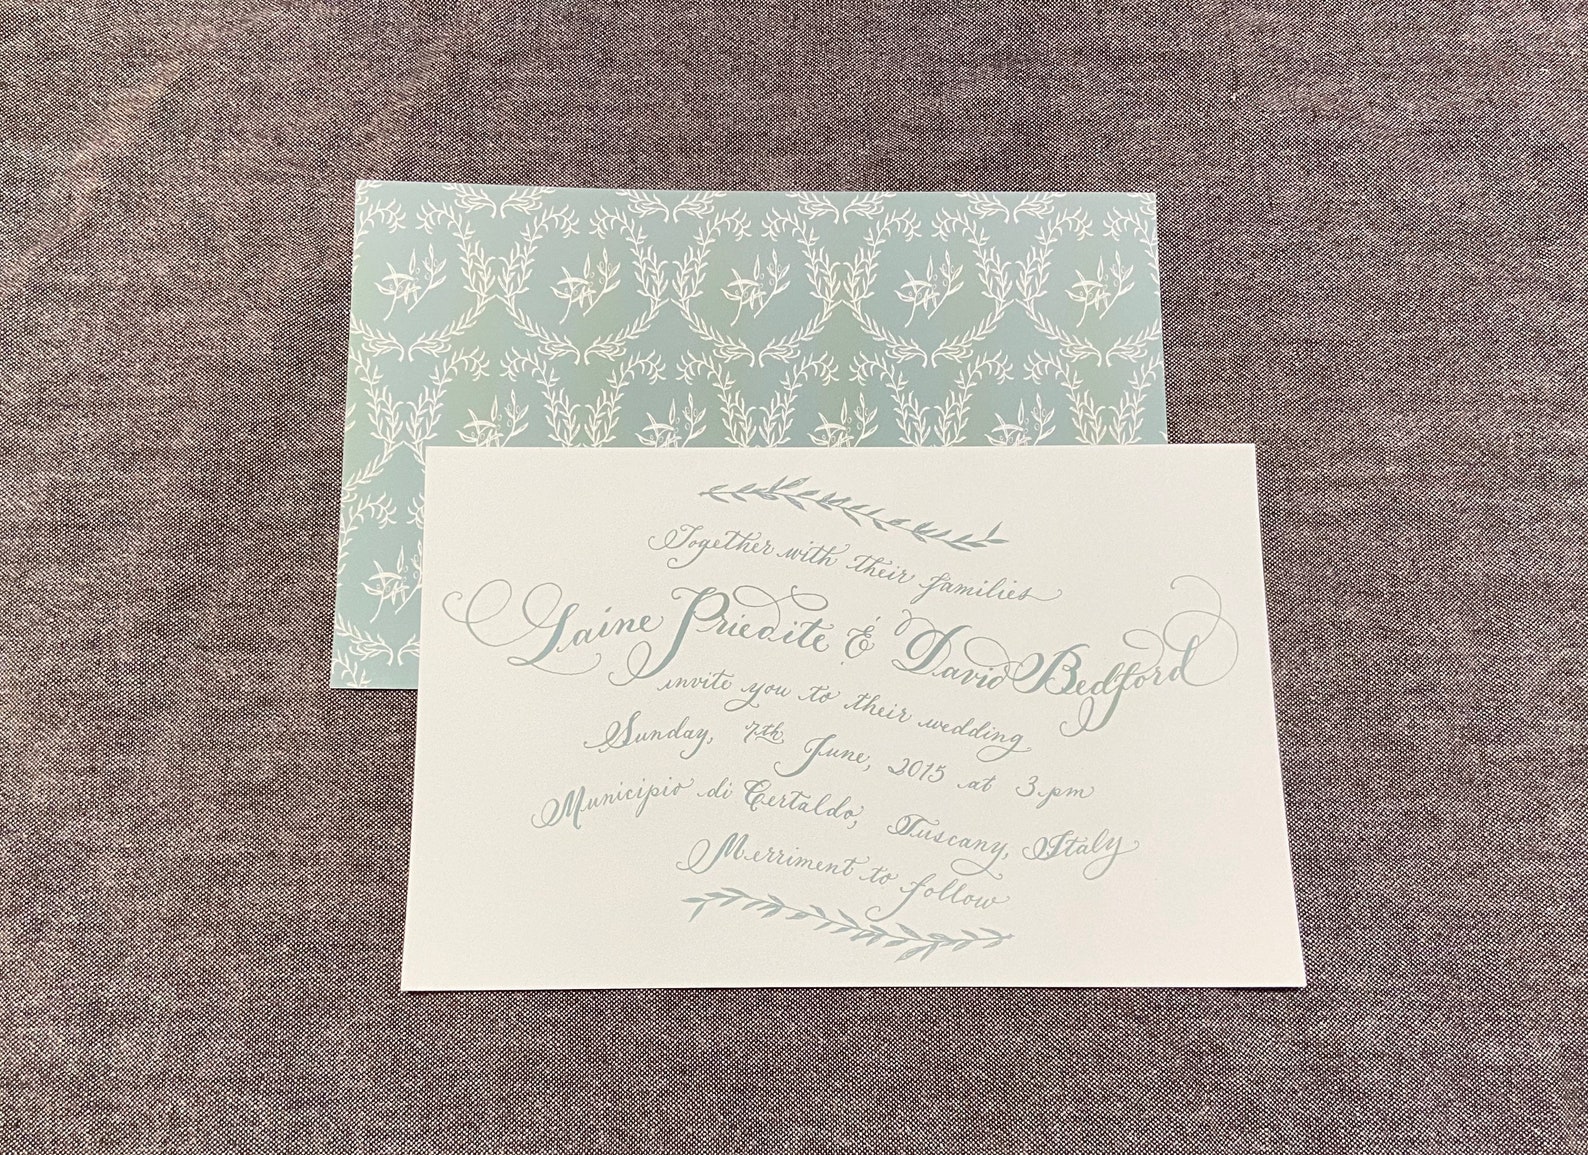 Together with their families
Laine Priedite & David Bedford
invite you to their wedding
Sunday, 7th June, 2015 at 3pm
Municipio di Certaldo, Tuscany, Italy
Merriment to follow